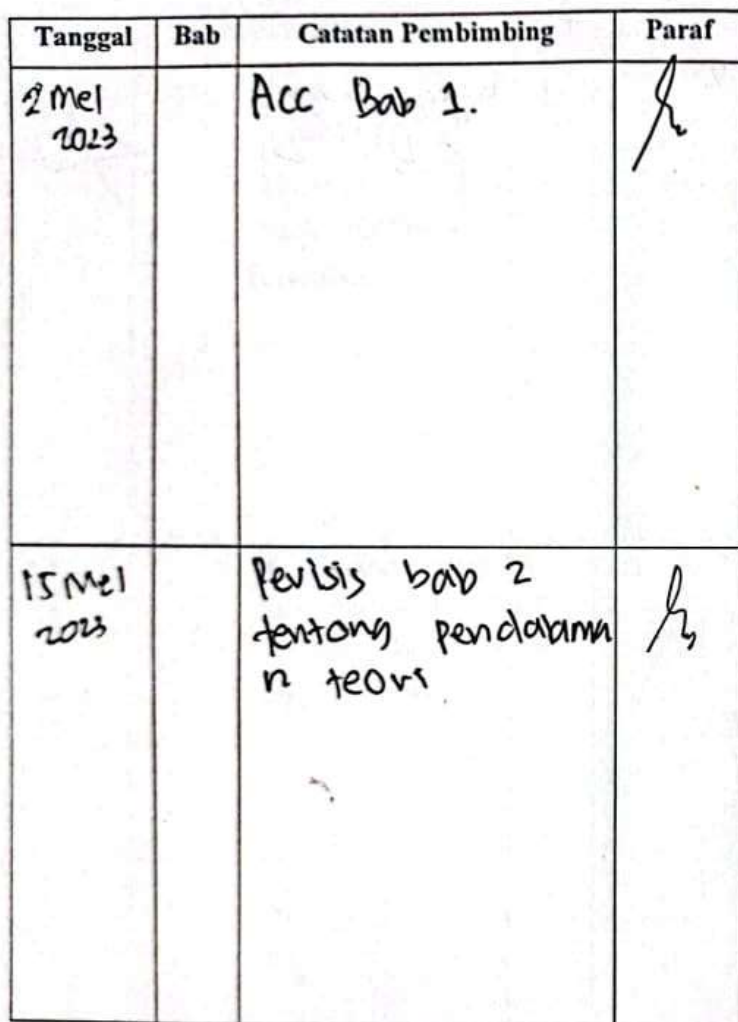 Tanggal Bab Catatan Pembimbing Paraf
2 Mei Acc Bab 1.
2023
15 Mei Revisis bab 2
2023 tentang pendalama
n teori